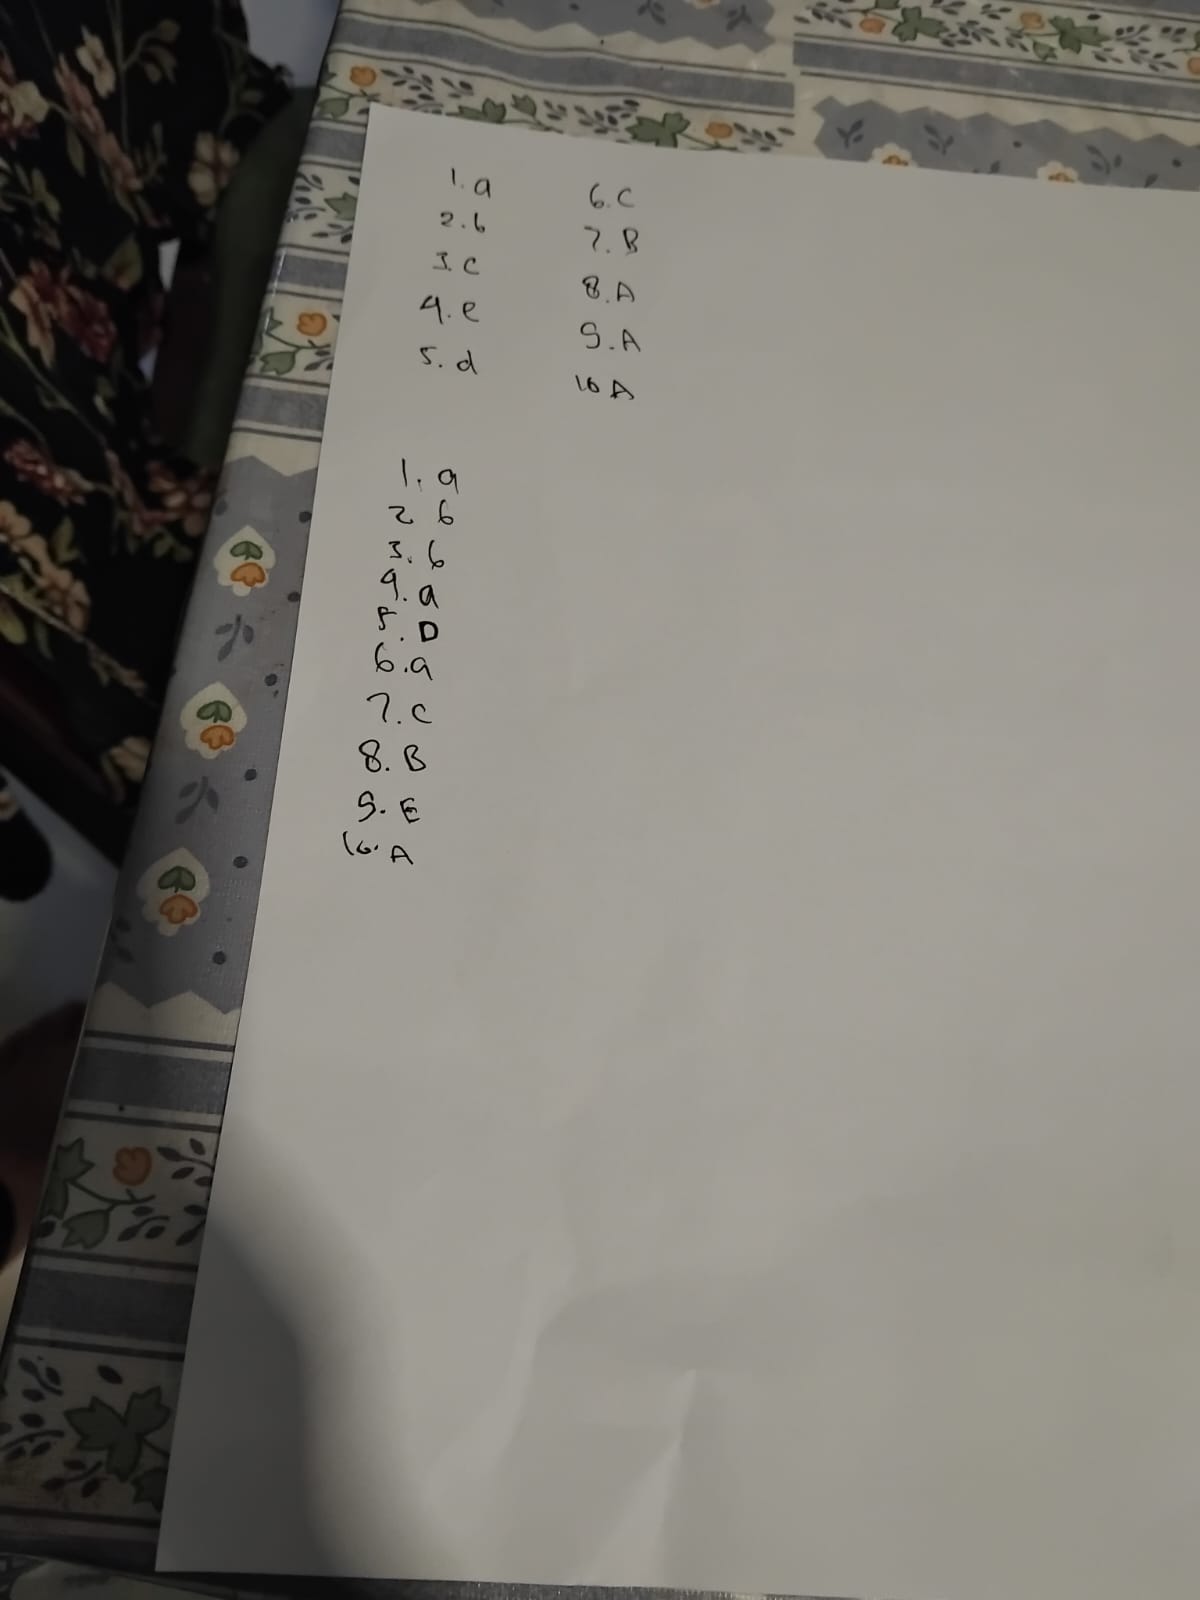 1. a
2. b
3. c
4. e
5. d
6. C
7. B
8. A
9. A
10 A
1. a
2 b
3. b
4. a
5. D
6. a
7. C
8. B
9. E
10. A